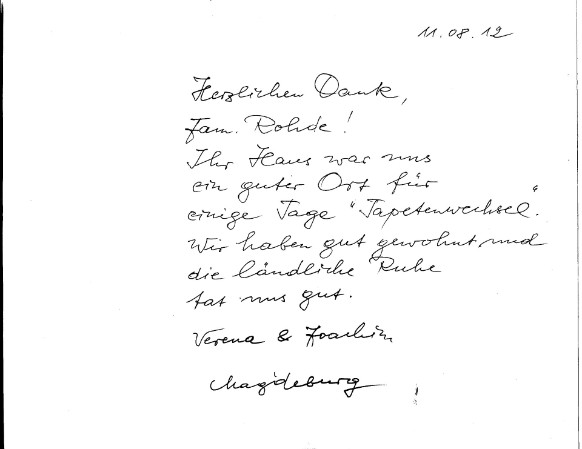 11.08.12
Herzlichen Dank,
Fam. Rohde!
Ihr Haus war uns
ein guter Ort für
einige Tage "Tapetenwechsel".
Wir haben gut gewohnt und
die ländliche Ruhe
tat uns gut.
Verena & Joachim
Magdeburg